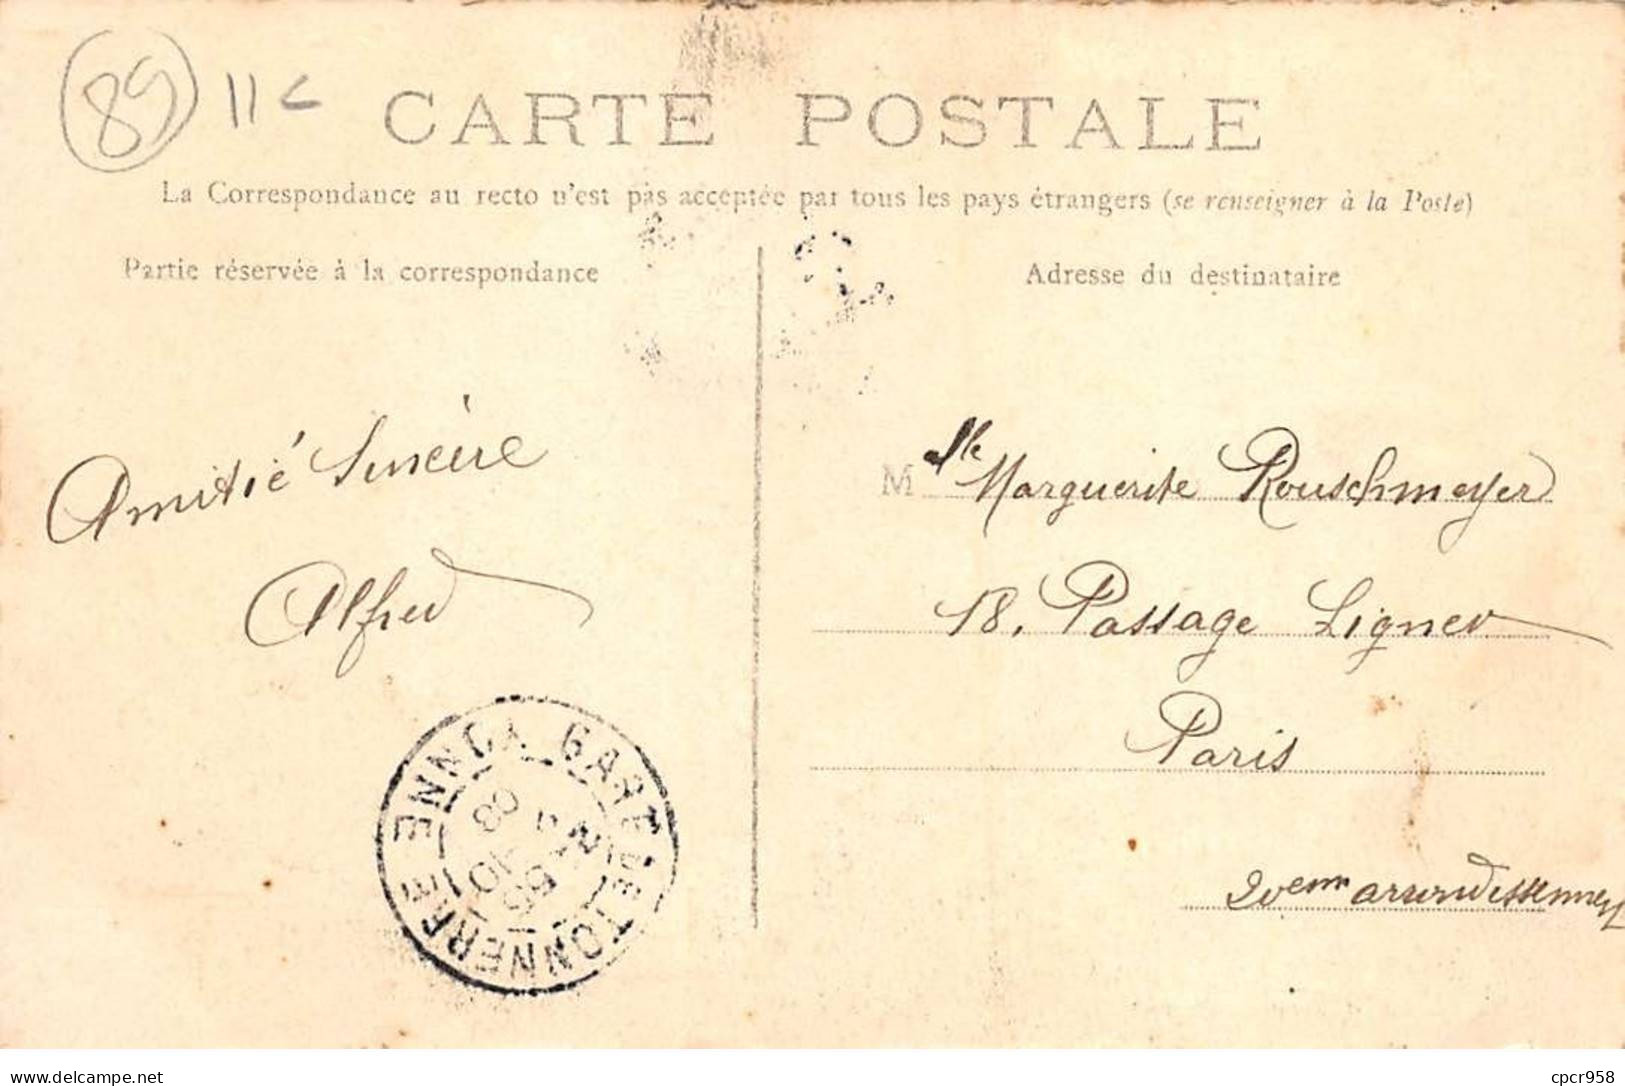 89 11c
CARTE POSTALE
La Correspondance au recto n'est pas acceptée par tous les pays étrangers (se renseigner à la Poste)
Partie réservée à la correspondance
Adresse du destinataire
Amitié Sincère
Alfred
Mlle Marguerite Rouschmeyer
18, Passage Ligner
Paris
20eme arrondissement
GARE DE TONNERRE YONNE
cpcr958